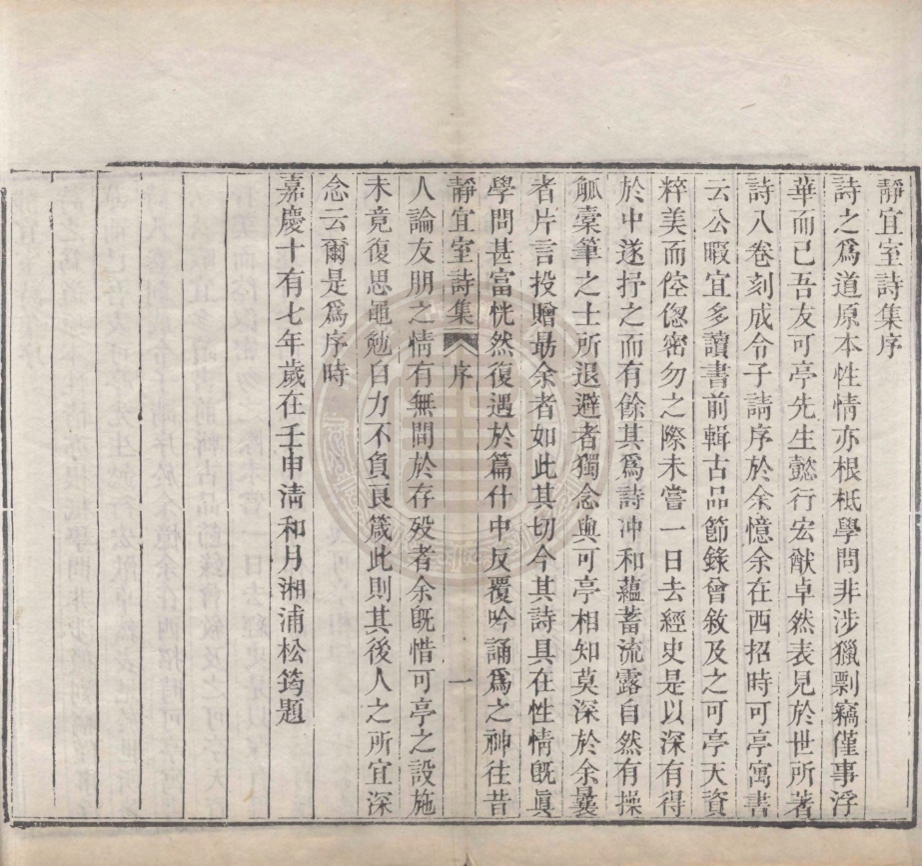 靜宜室詩集序
詩之爲道原本性情亦根柢學問非涉獵剽竊僅事浮
華而已吾友可亭先生懿行宏猷卓然表見於世所著
詩八卷刻成令子請序於余憶余在西招時可亭寓書
云公暇宜多讀書前輯古品節錄曾敘及之可亭天資
粹美而倥傯密勿之際未嘗一日去經史是以深有得
於中遂抒之而有餘其爲詩冲和蘊蓄流露自然有操
觚槖筆之士所退避者獨念與可亭相知莫深於余曩
者片言投贈勗余者如此其切今其詩具在性情旣眞
學問甚富恍然復遇於篇什中反覆吟誦爲之神往昔
靜宜室詩集 序 一
人論友朋之情有無間於存歿者余旣惜可亭之設施
未竟復思黽勉自力不負良箴此則其後人之所宜深
念云爾是爲序時
嘉慶十有七年歲在壬申清和月湘浦松筠題